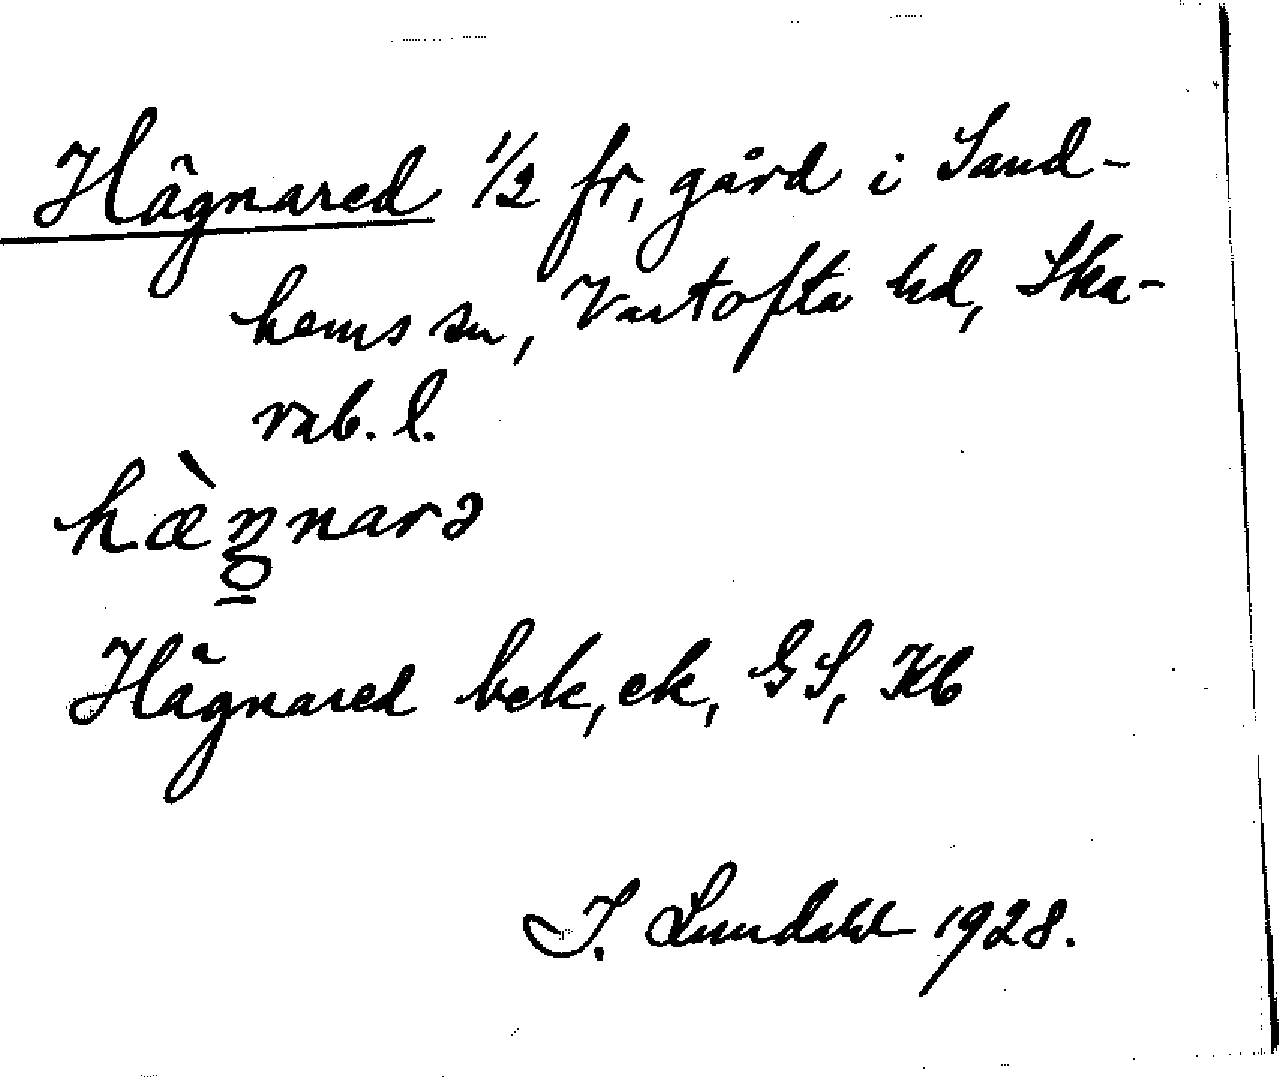 Hägnared 1/2 fr, gård i Sand-
hems sn, Vartofta hd, Ska-
rab. l.
hæ̀ŋnarə
Hägnared bek, ek, GS, Kb
I. Lundahl 1928.